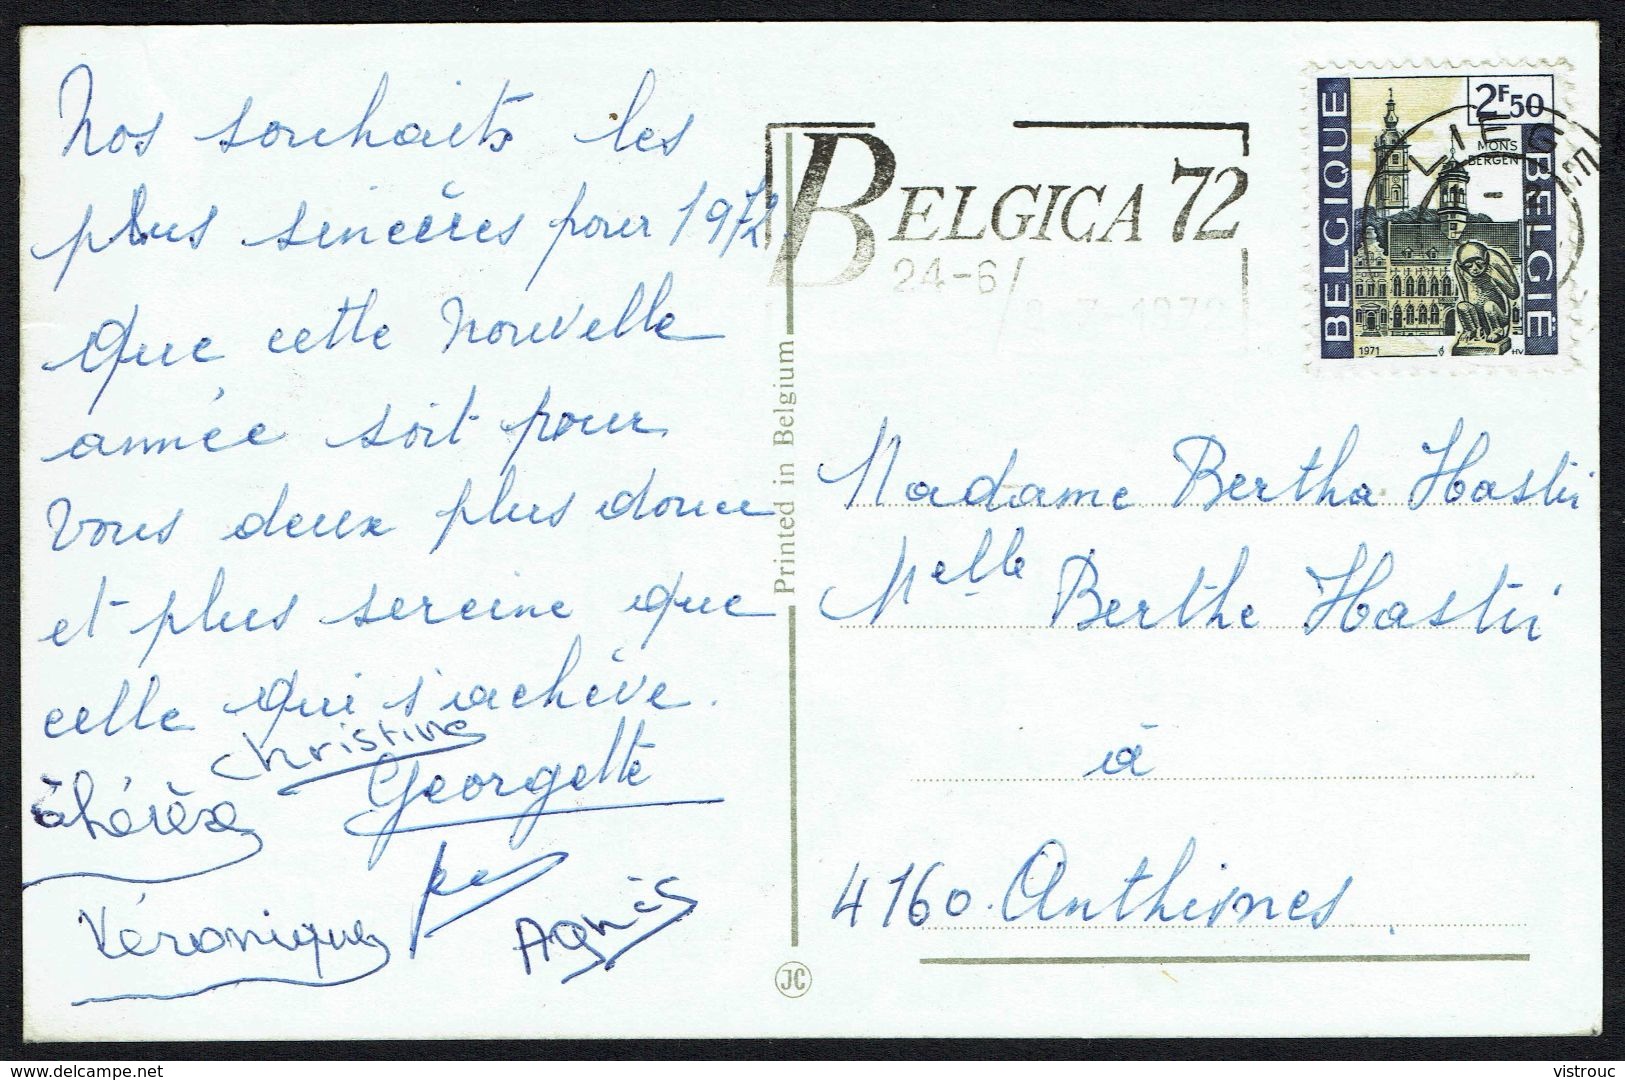 Nos souhaits les
plus sincères pour 1972.
Que cette nouvelle
année soit pour
vous deux plus douce
et plus sereine que
celle qui s'achève.
Christine
Georgette
Thérèse
Véronique
Agnès
Printed in Belgium
JC
BELGICA 72
24-6/
BELGIQUE
2F50
MONS
BERGEN
BELGIË
1971
HV
LIEG
Madame Bertha Hastir
Melle Berthe Hastir
à
4160. Anthisnes
delcampe.net
vistrouc